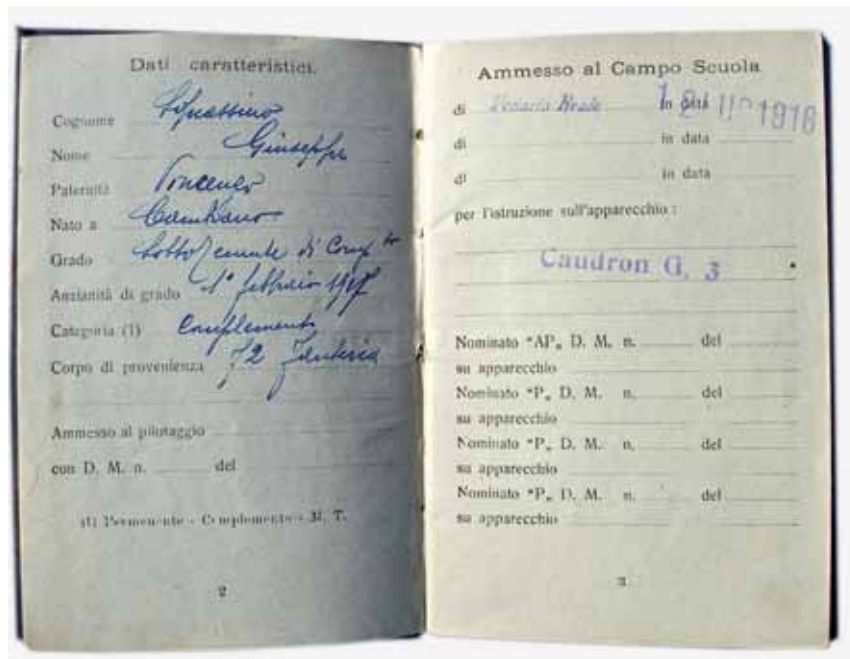 Dati caratteristici.
Cognome
Nome Giuseppe
Paternità Vincenzo
Nato a Cambiano
Grado Sotto Tenente di Comp.to
Anzianità di grado 1° febbraio 1917
Categoria (1) Complemento
Corpo di provenienza 72 Fanteria
Ammesso al pilotaggio
con D. M. n. del
(1) Permanente - Complemento - M. T.
2
Ammesso al Campo Scuola
di Venaria Reale In data 1918
di in data
di in data
per l'istruzione sull'apparecchio :
Caudron G. 3
Nominato "AP„ D. M. n. del
su apparecchio
Nominato "P„ D. M. n. del
su apparecchio
Nominato "P„ D. M. n. del
su apparecchio
Nominato "P„ D. M. n. del
su apparecchio
3